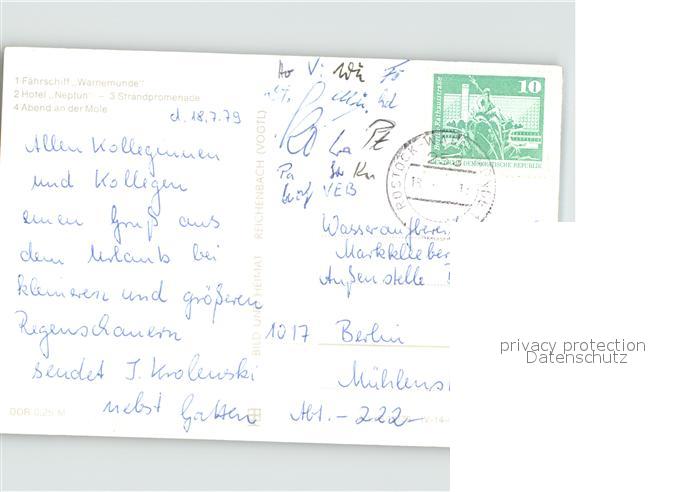 1 Fährschiff „Warnemünde"
2 Hotel „Neptun" – 3 Strandpromenade
4 Abend an der Mole
d. 18.7.79
Allen Kolleginnen
und Kollegen
einen Gruß aus
dem Urlaub bei
kleineren und größeren
Regenschauern
sendet I. Krolewski
nebst Gatten
DDR 0,25 M
BILD UND HEIMAT REICHENBACH (VOGTL)
10
DEMOKRATISCHE REPUBLIK
ROSTOCK
VEB
Wasseraufberei
Markkleeber
Außenstelle
1017 Berlin
Mühlens
Abt. - 222-
privacy protection
Datenschutz